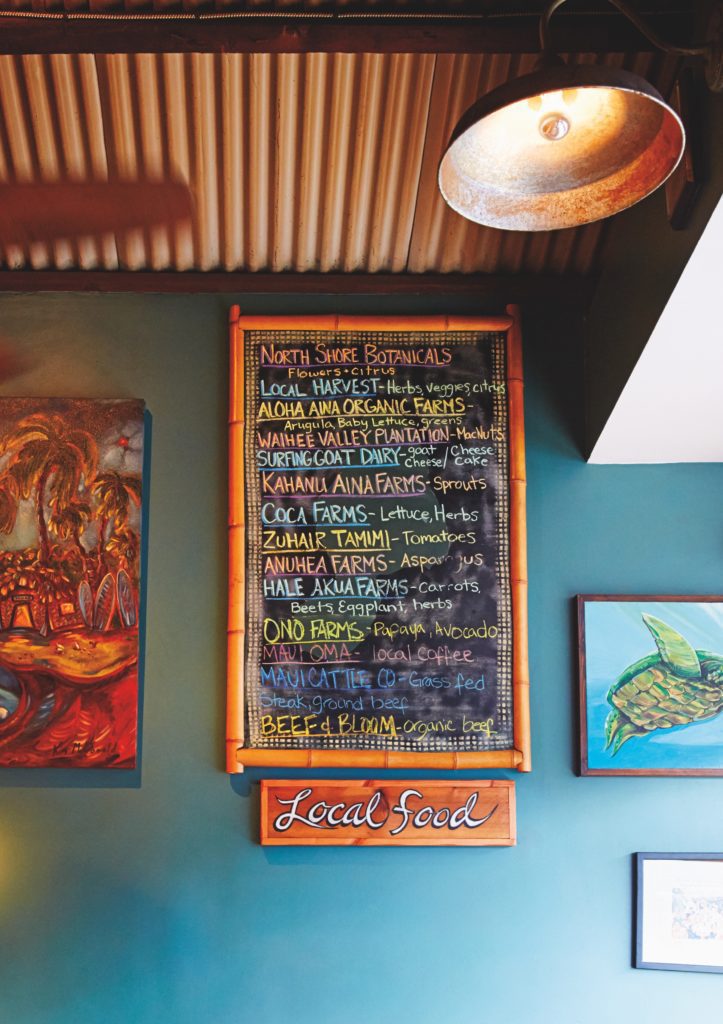 NORTH SHORE BOTANICALS
Flowers + citrus
LOCAL HARVEST - Herbs, veggies, citrus
ALOHA AINA ORGANIC FARMS -
Arugula, Baby Lettuce, greens
WAIHEE VALLEY PLANTATION - MacNuts
SURFING GOAT DAIRY - goat cheese / cheese cake
KAHANU AINA FARMS - Sprouts
COCA FARMS - Lettuce, Herbs
ZUHAIR TAMIMI - Tomatoes
ANUHEA FARMS -
HALE AKUA FARMS - Carrots,
Beets, Eggplant, herbs
ONO FARMS - Papaya, Avocado
MAUI OMA - local coffee
MAUI CATTLE CO - Grass fed
Steak, ground beef
BEEF & BLOOM - organic beef
Local food